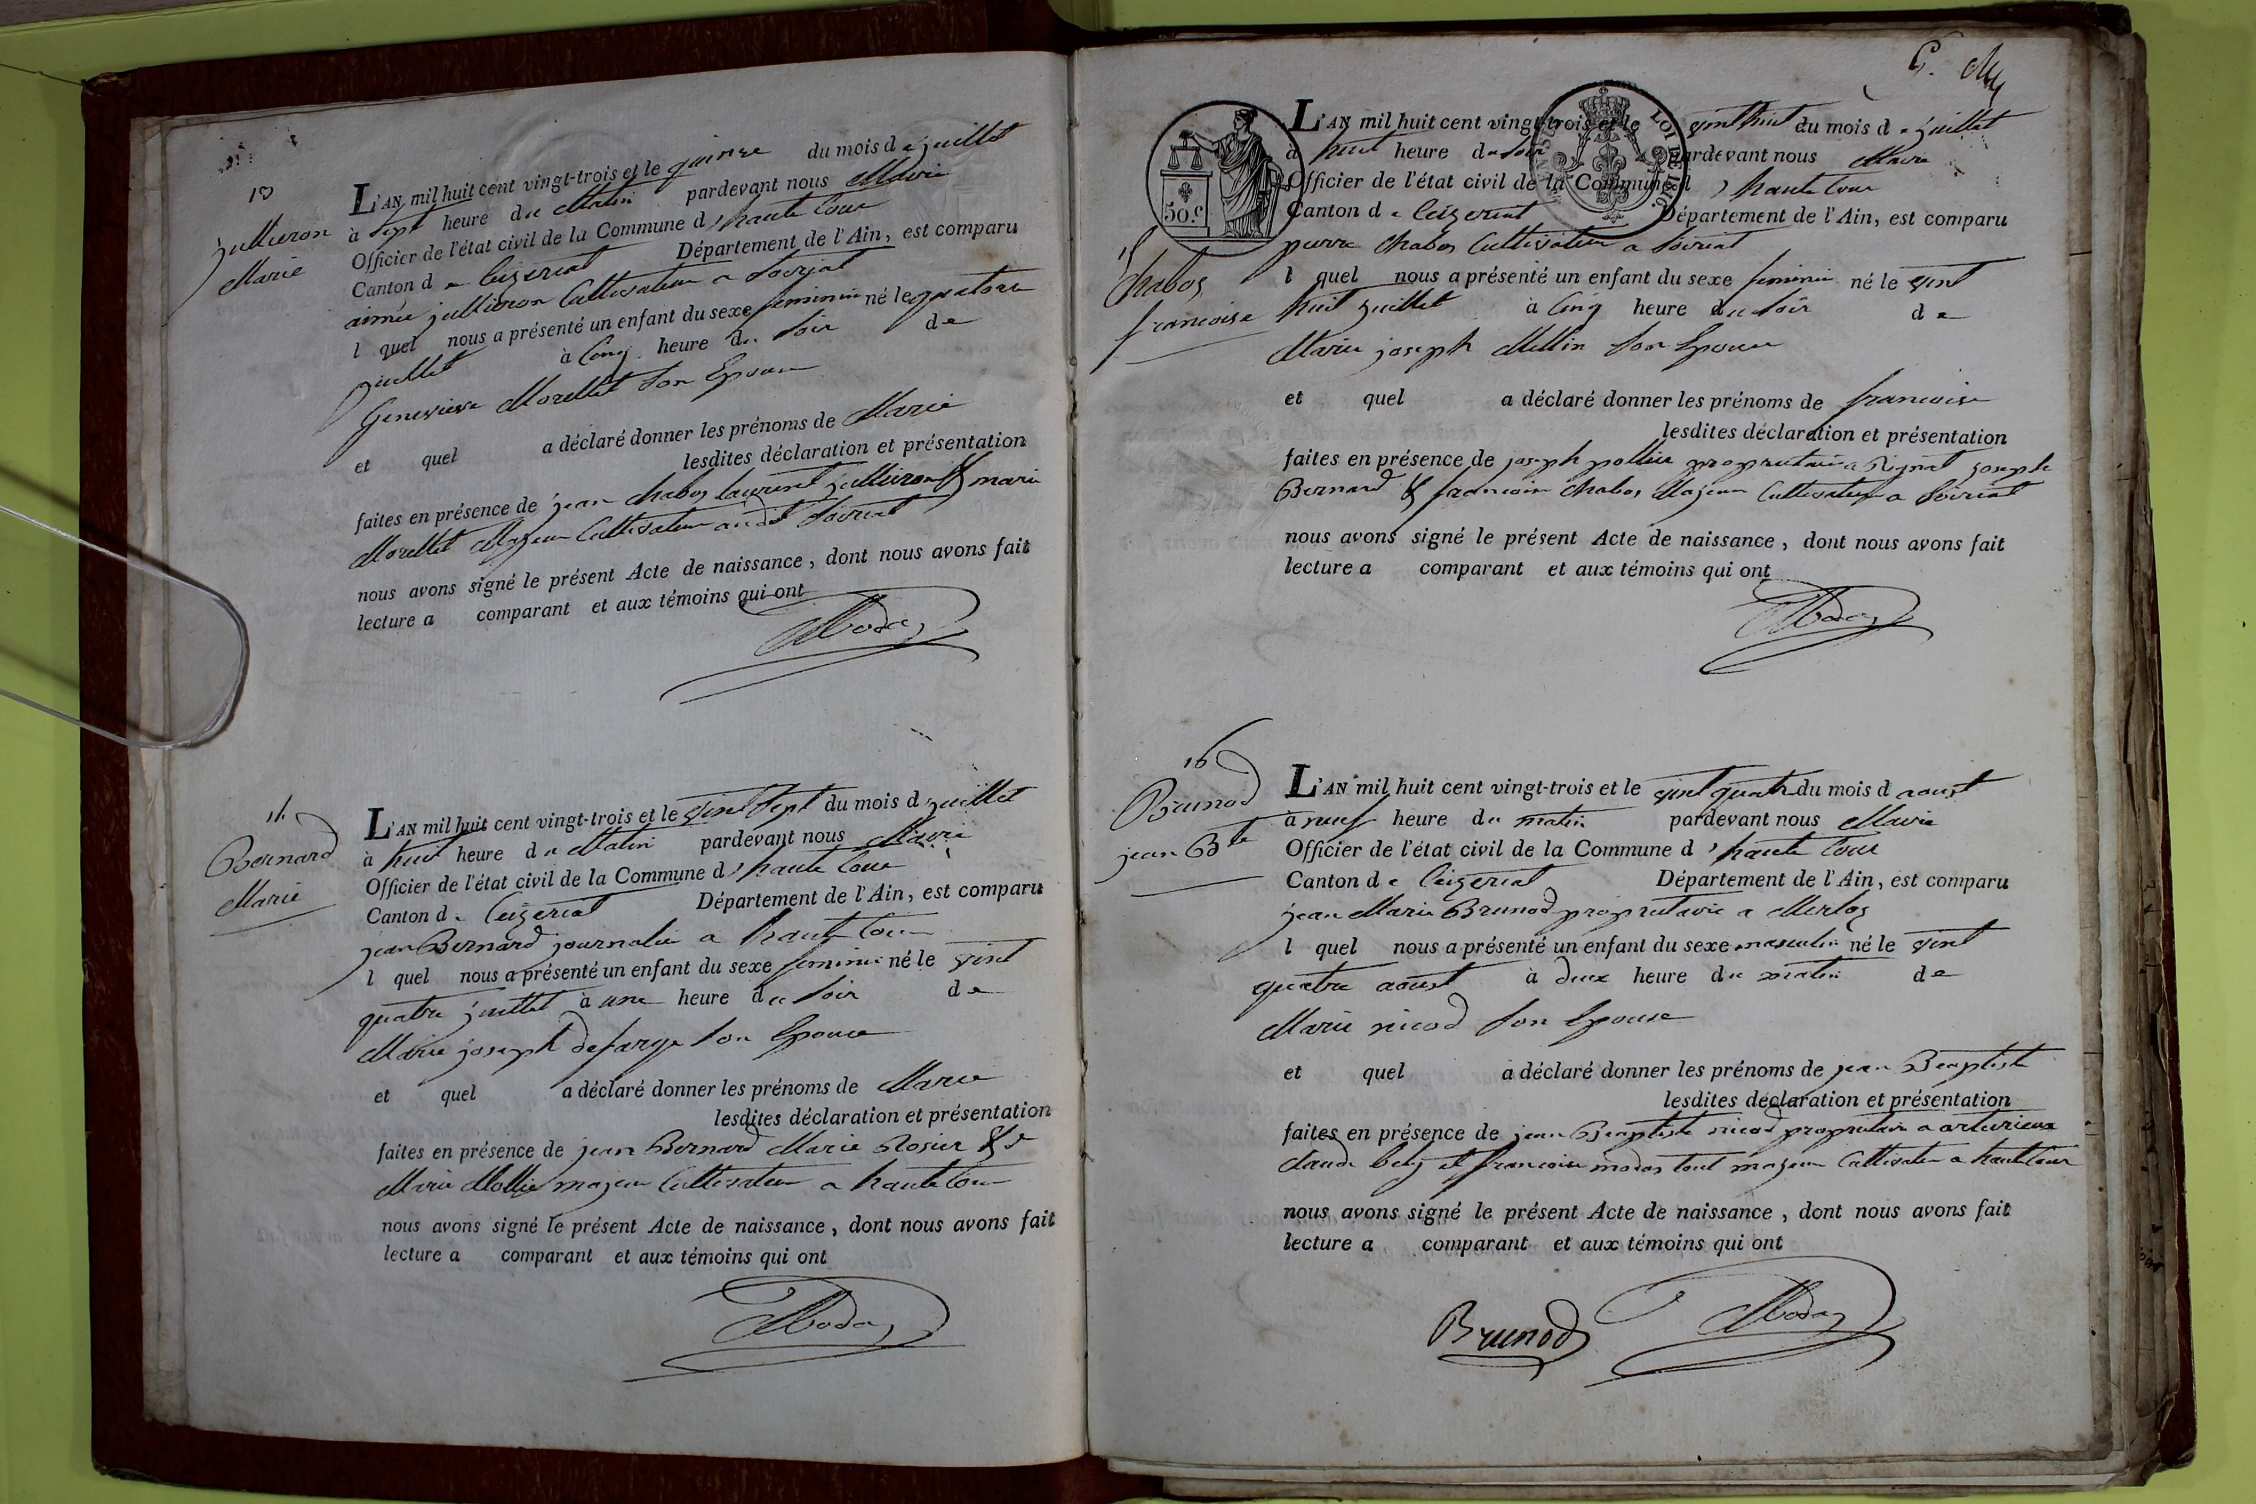 13
jullieron
Marie
L'AN mil huit cent vingt-trois et le quinze du mois de juillet
à sept heure du Matin pardevant nous Maire
Officier de l'état civil de la Commune d'haute Cour
Canton de Ceizeriat Département de l'Ain, est comparu
aimée jullieron Cultivateur a Soiriat
l quel nous a présenté un enfant du sexe feminin né le quatorze
juillet à Cinq heure du Soir de
Genevieve Morellet Son Epouse
et quel a déclaré donner les prénoms de Marie
lesdites déclaration et présentation
faites en présence de jean Chabos laurent jullieron & marie
Morellet Majeur Cultivateur audit Soiriat
nous avons signé le présent Acte de naissance, dont nous avons fait
lecture a comparant et aux témoins qui ont
14
Bernard
Marie
L'AN mil huit cent vingt-trois et le vint Sept du mois d juillet
à huit heure du Matin pardevant nous Maire
Officier de l'état civil de la Commune d'haute Cour
Canton de Ceizeriat Département de l'Ain, est comparu
jean Bernard journalie a haute Cour
l quel nous a présenté un enfant du sexe feminin né le vint
quatre juillet à une heure du Soir de
Marie joseph defarge Son Epouse
et quel a déclaré donner les prénoms de Marie
lesdites déclaration et présentation
faites en présence de jean Bernard Marie Rosier & de
Marie Mollie majeur Cultivateur a haute Cour
nous avons signé le présent Acte de naissance, dont nous avons fait
lecture a comparant et aux témoins qui ont
50.c
LOI DE 1816
15
Chabos
francoise
L'AN mil huit cent vingt-trois et le vint huit du mois de juillet
à huit heure du Soir pardevant nous Maire
Officier de l'état civil de la Commune d'haute Cour
Canton de Ceizeriat Département de l'Ain, est comparu
pierre Chabos Cultivateur a Soiriat
l quel nous a présenté un enfant du sexe feminin né le vint
huit juillet à Cinq heure du Soir de
Marie joseph Millin Son Epouse
et quel a déclaré donner les prénoms de francoise
lesdites déclaration et présentation
faites en présence de joseph pollie proprietaire a Rignat joseph
Bernard & francois Chabos Majeur Cultivateur a Soiriat
nous avons signé le présent Acte de naissance, dont nous avons fait
lecture a comparant et aux témoins qui ont
16
Brunod
jean Bte
L'AN mil huit cent vingt-trois et le vint quatre du mois d aoust
à neuf heure du matin pardevant nous Maire
Officier de l'état civil de la Commune d'haute Cour
Canton de Ceizeriat Département de l'Ain, est comparu
jean Marie Brunod proprietaire a Merloz
l quel nous a présenté un enfant du sexe masculin né le vint
quatre aoust à deux heure du matin de
Marie nicod Son Epouse
et quel a déclaré donner les prénoms de jean Baptiste
lesdites déclaration et présentation
faites en présence de jean Baptiste nicod proprietaire a arturieux
Claude et francois modas tout majeur Cultivateur a haute Cour
nous avons signé le présent Acte de naissance, dont nous avons fait
lecture a comparant et aux témoins qui ont
Brunod